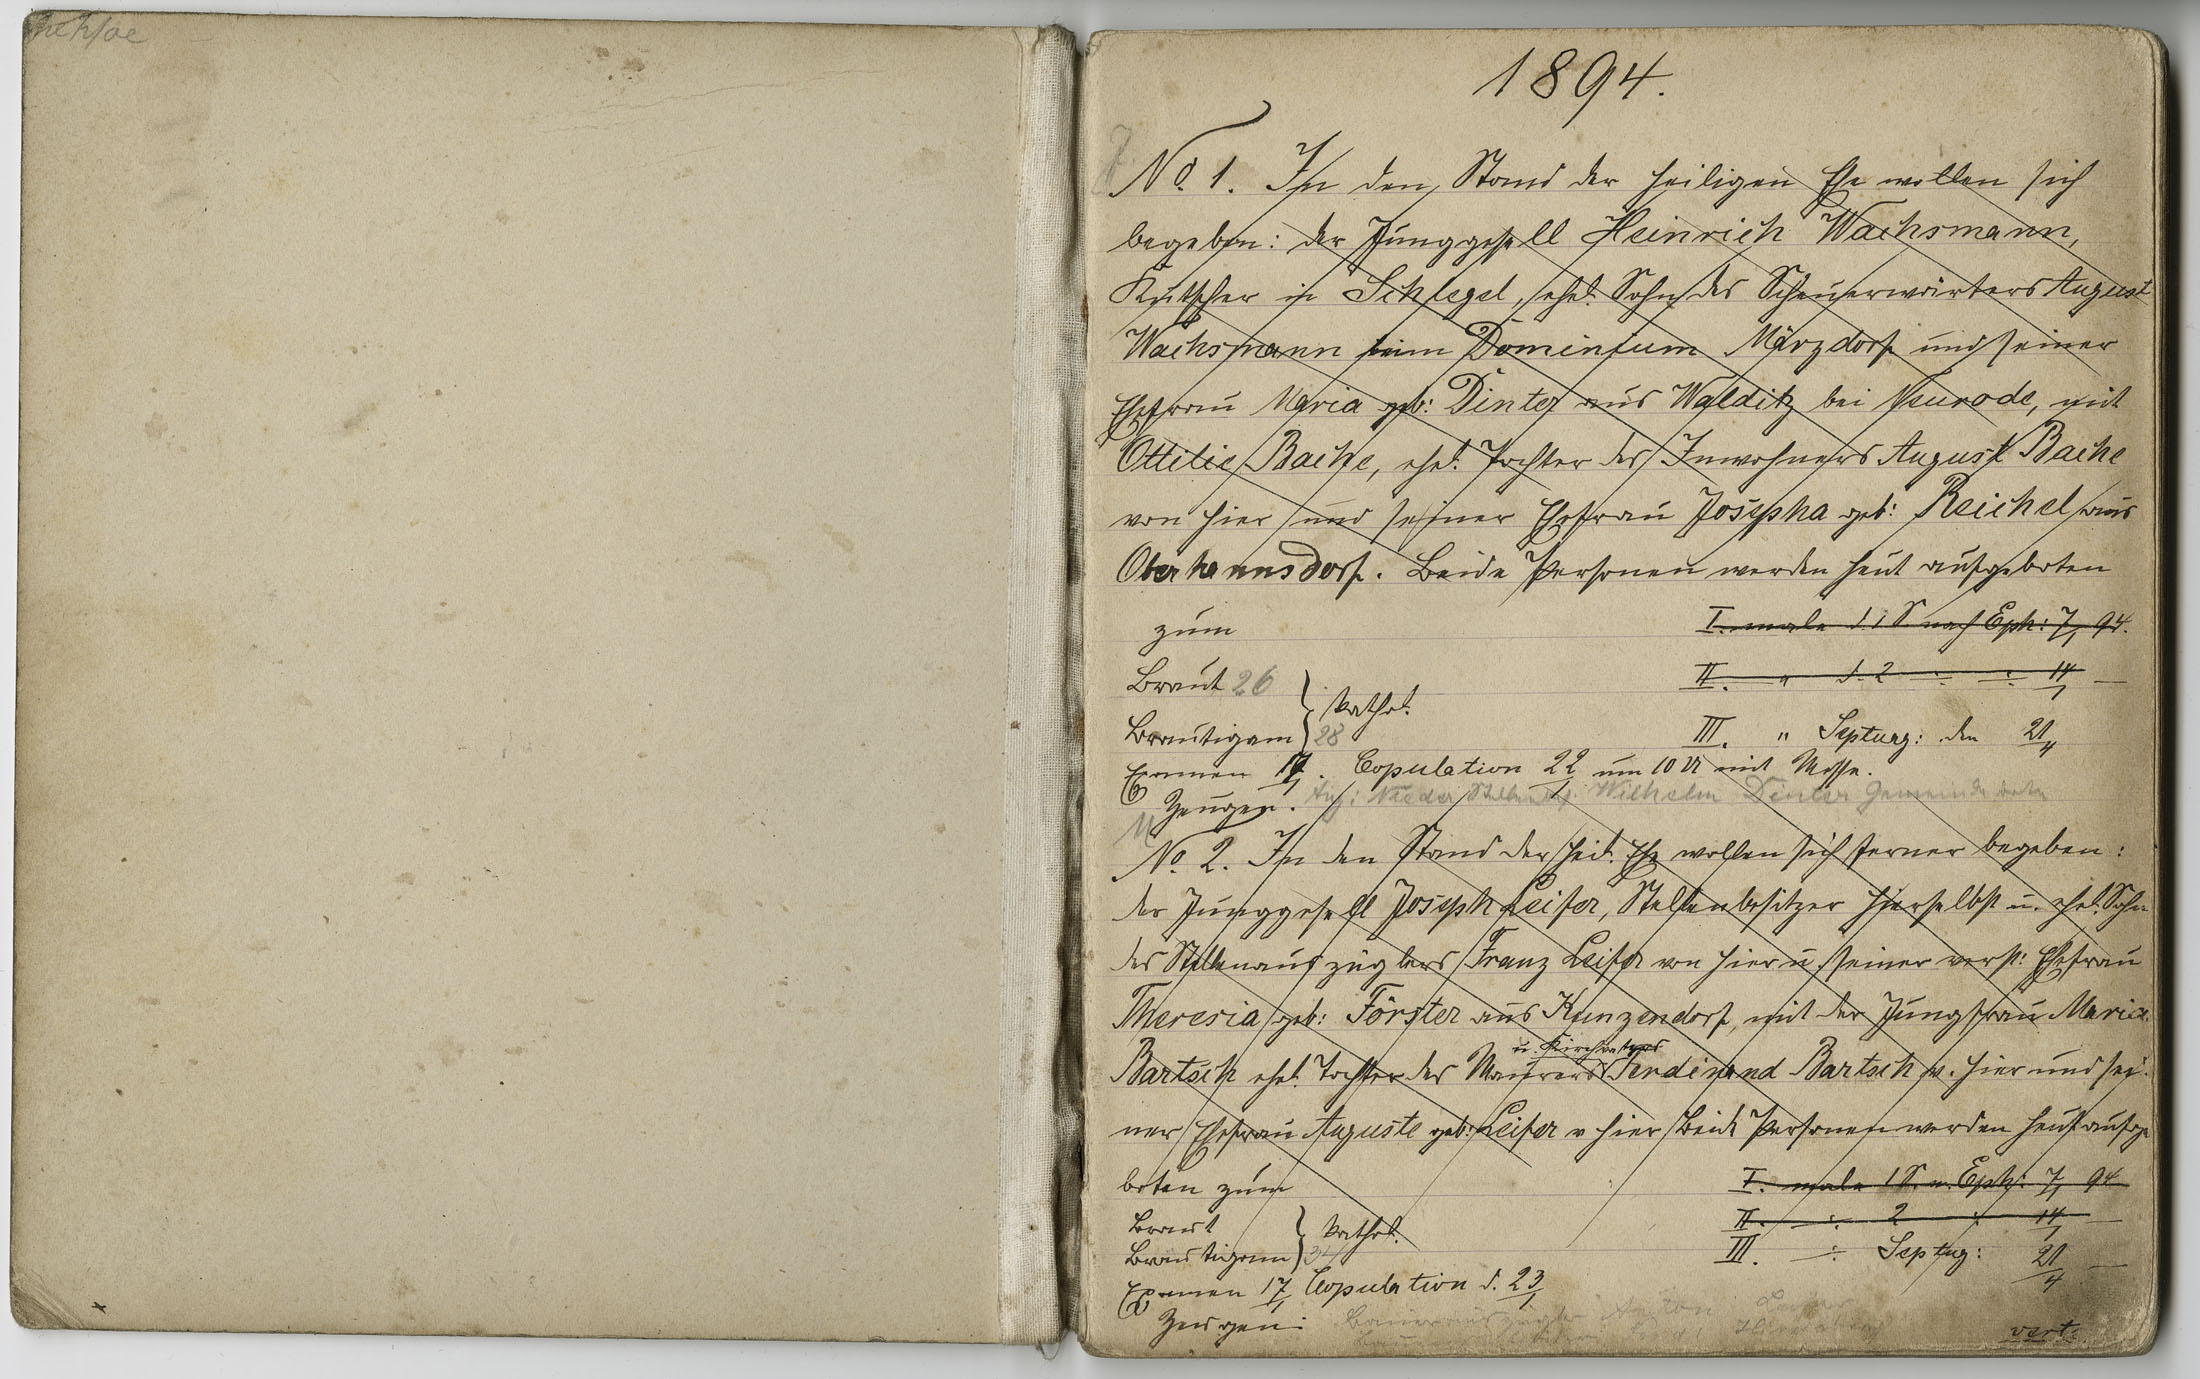 1894.
No. 1. In den Stand der heiligen Ehe wollen sich
begeben: der Junggesell Heinrich Wachsmann,
Kutscher in Schlegel, ehel. Sohn des Scheuerwärters August
Wachsmann beim Dominium Märzdorf und seiner
Ehefrau Maria geb: Dinter aus Walditz bei Neurode, mit
Ottilie Bache, ehel. Tochter des Inwohners August Bache
von hier und seiner Ehefrau Josepha geb: Reichel aus
Oberhannsdorf. Beide Personen werden heut aufgeboten
zum I. male d. 1 S. nach Eph: 7/1 94.
Braut 26 II. " d. 2 14/1
kathol.
Bräutigam 28 III. " Septuag: den 21/1
Examen 17/1. Copulation 22/1 um 10 U mit Messe.
Zeugen. Aug: Wilhelm Dinter Gemeinde
No. 2. In den Stand der heil. Ehe wollen sich ferner begeben:
der Junggesell Joseph Leifer, Stellenbesitzer hierselbst u. ehel. Sohn
des Stellenauszüglers Franz Leifer von hier u. seiner verst: Ehefrau
Theresia geb: Förster aus Kunzendorf, mit der Jungfrau Maria
u. Kirchvaters
Bartsch ehel. Tochter des Maurers Ferdinand Bartsch v. hier und sei-
ner Ehefrau Auguste geb: Leifer v hier Beide Personen werden heut aufge
boten zum I. male 1 S. n. Eph: 7/1 94
Braut II. 2 14/1
kathol.
Bräutigam III. Septag: 21/1
Examen 17/1 Copulation d. 23/1
Zeugen: Anton
vert.